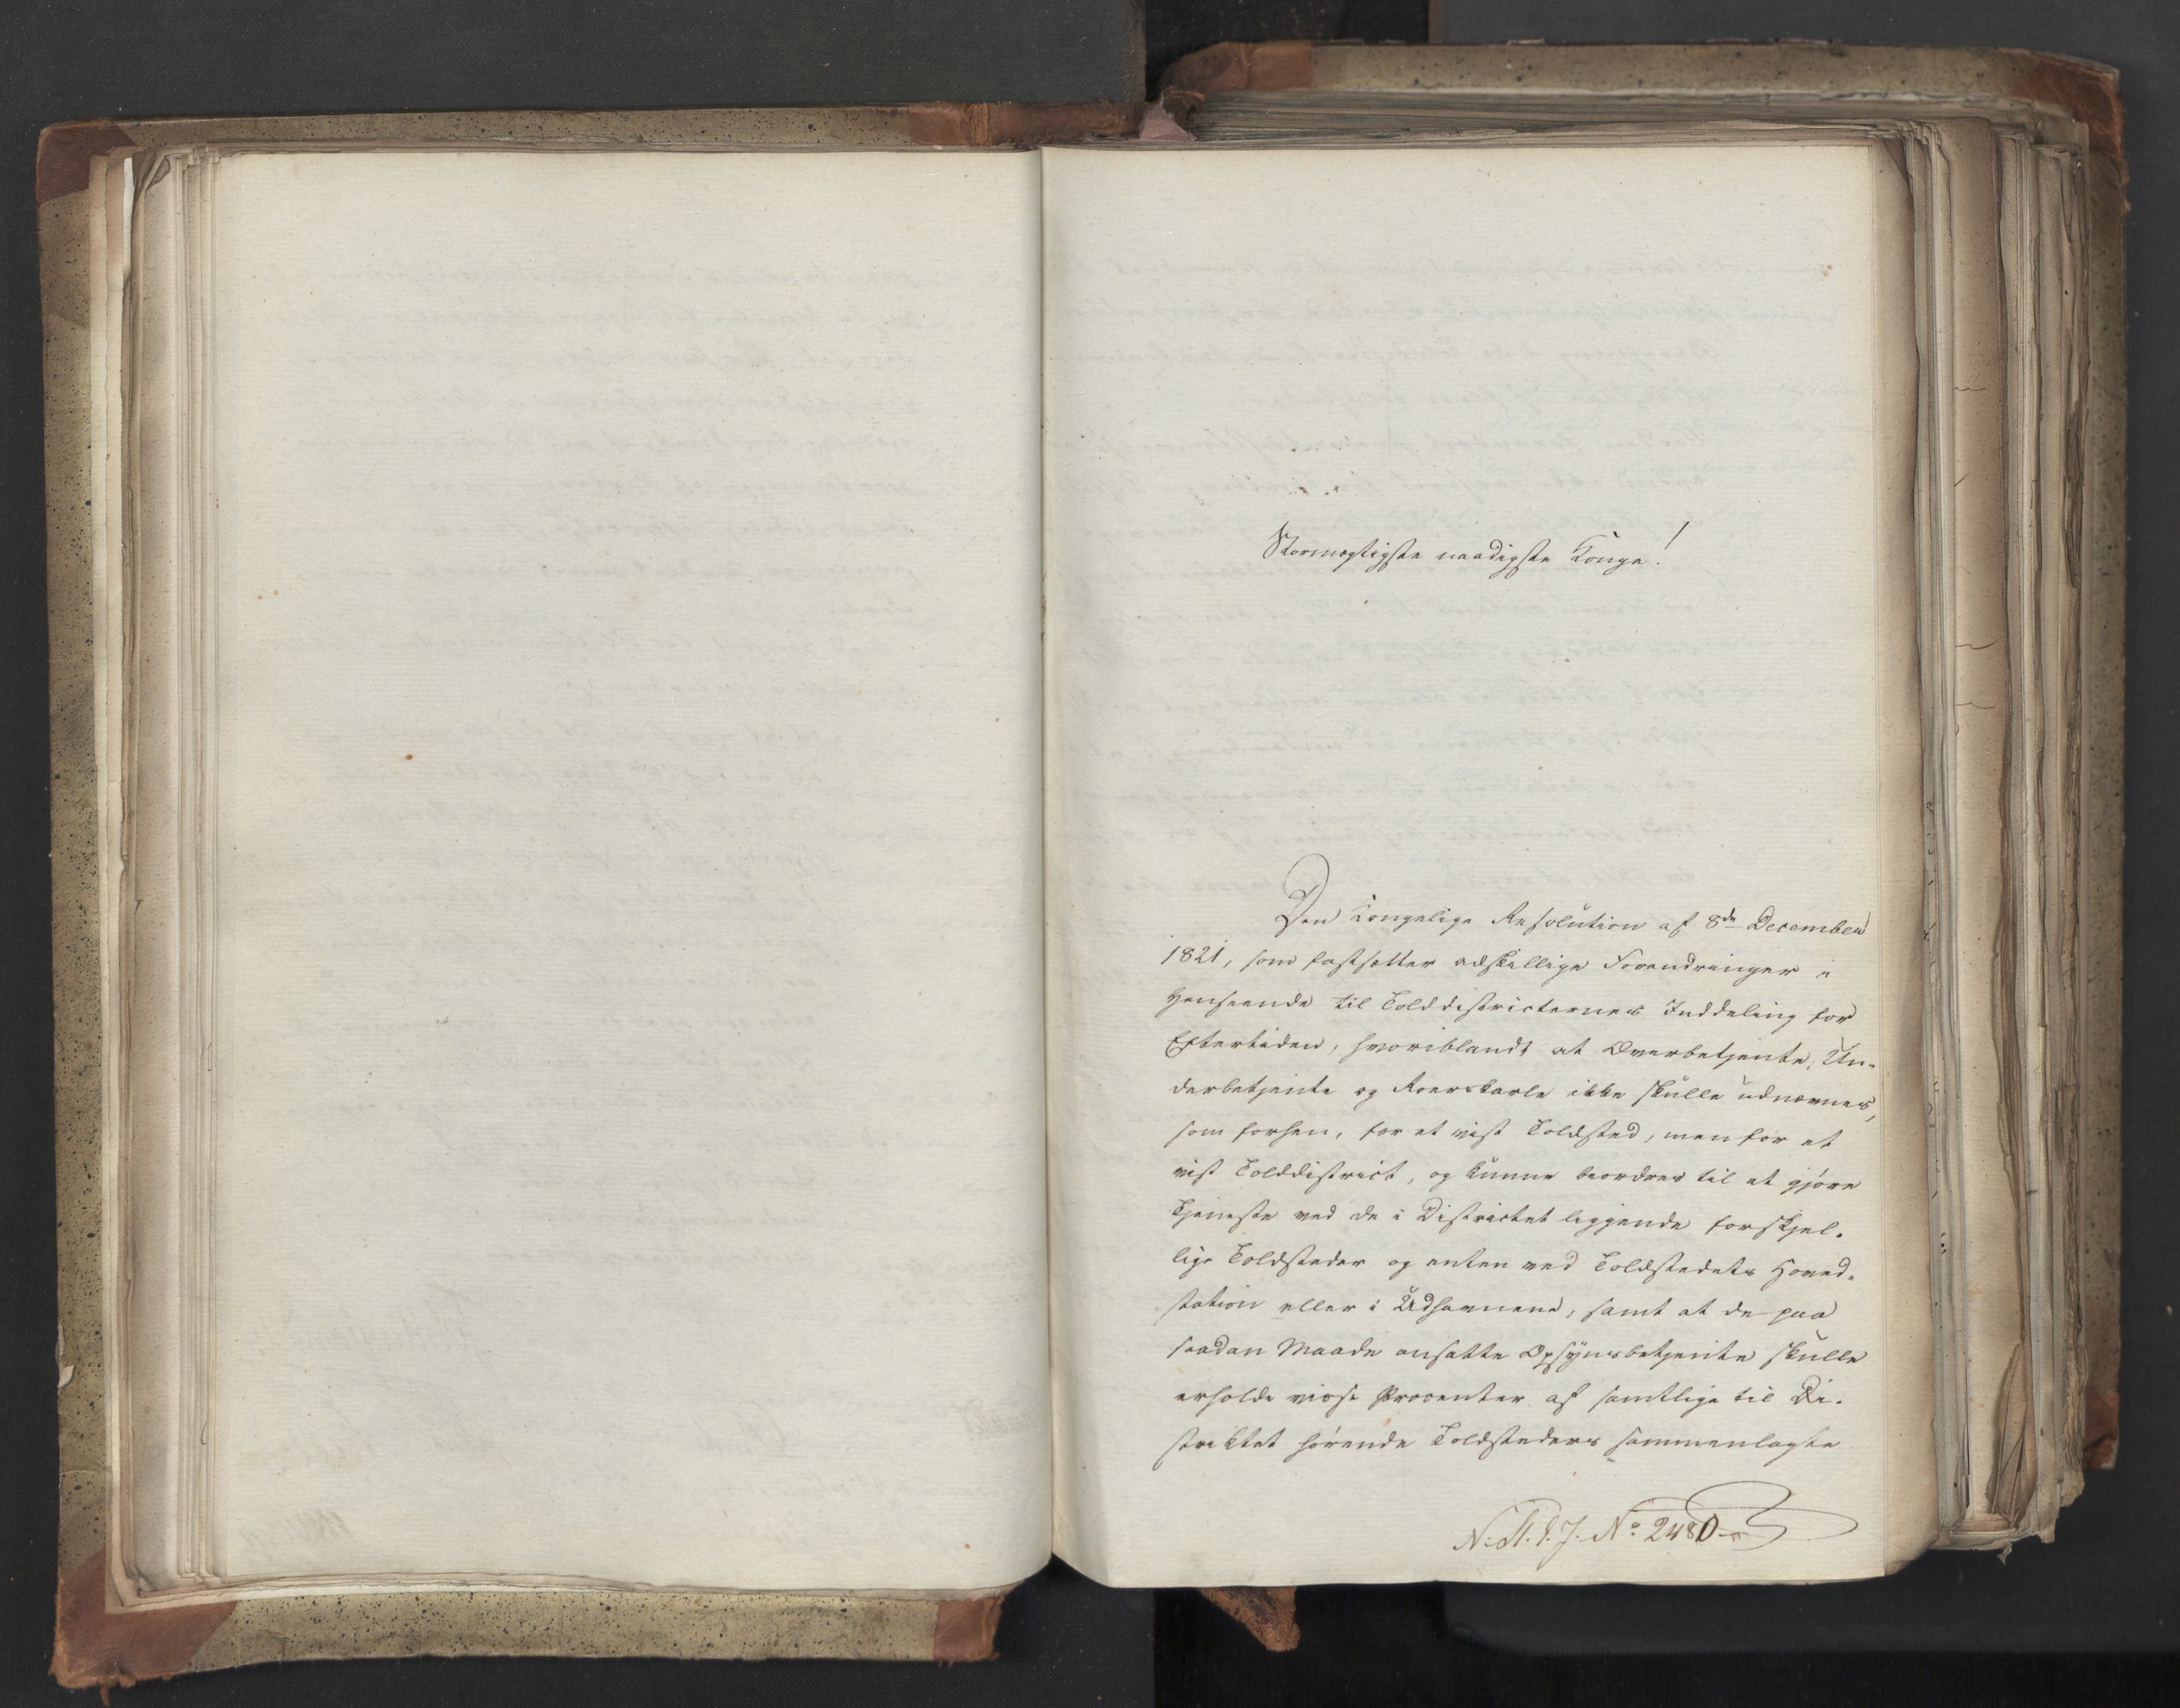 Stormægtigste naadigste Konge!
Den Kongelige Resolution af 8de December
1821, som fastsætter adskillige Forandringer i
Henseende til Tolddistricternes Inddeling for
Eftertiden, hvoriblandt at Overbetjente, Un-
derbetjente og Roerskarle ikke skulle udnævnes,
som forhen, for et vist Toldsted, men for et
vist Tolddistrict, og kunne beordres til at gjöre
Tjeneste ved de i Districtet liggende forskjel-
lige Toldsteder og enten ved Toldstedets Hoved-
station eller i Udhavnene, samt at de paa
saadan Maade ansatte Opsÿnsbetjente skulle
erholde visse Procenter af samtlige til Di-
strictet hörende Toldsteders sammenlagte
No 2480